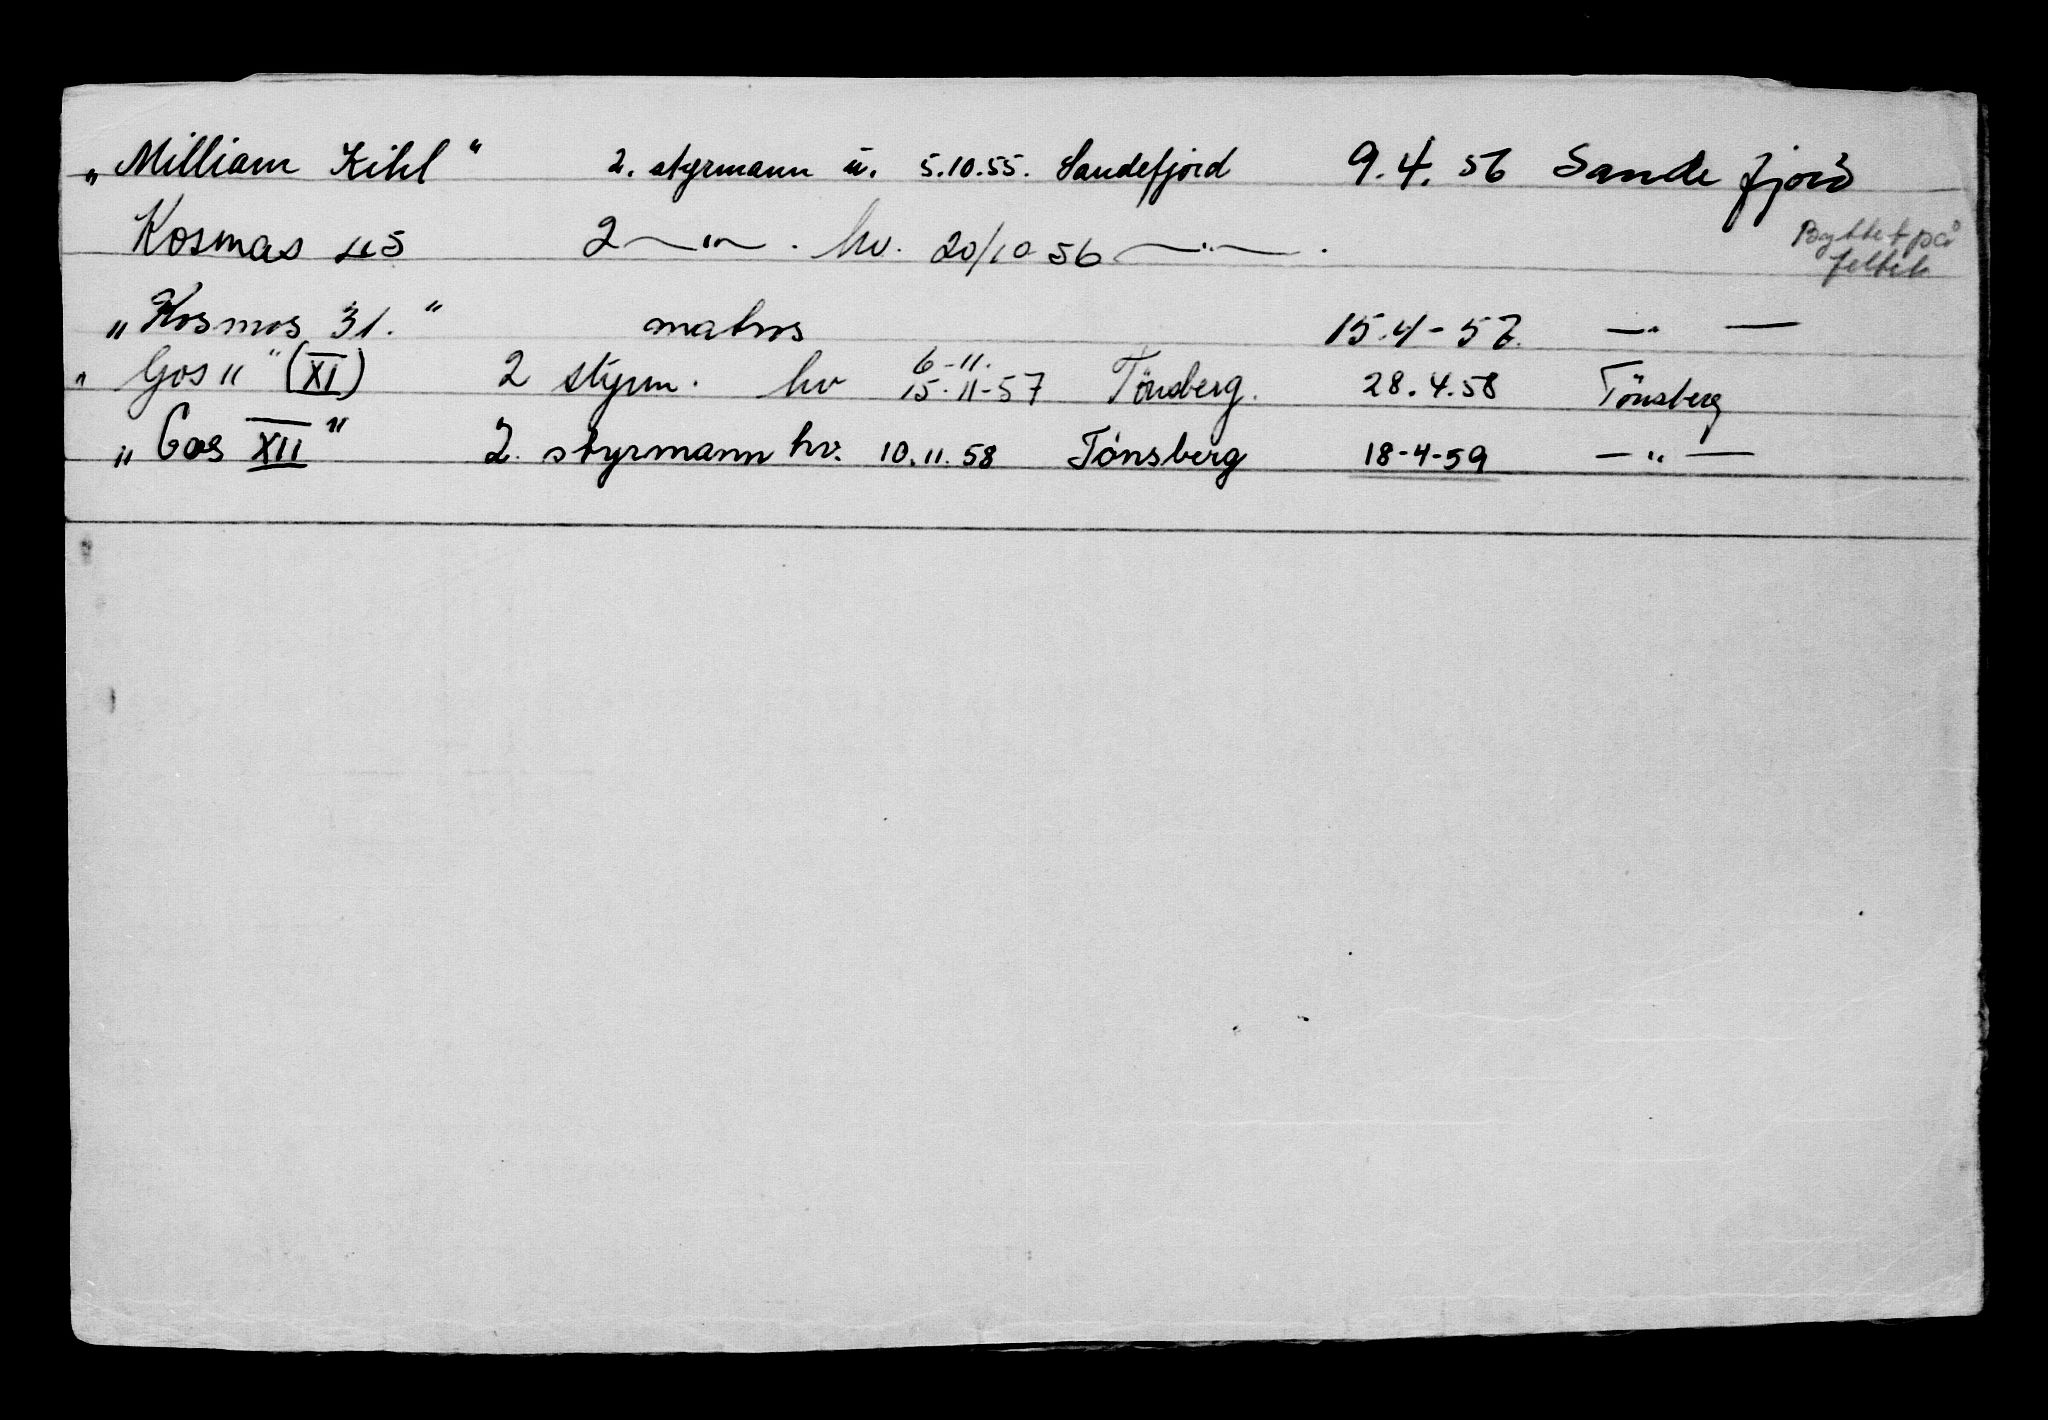 „Milliam Kihl" 2. styrmann u. 5.10.55. Sandefjord 9.4.56 Sandefjord
Kosmos 45 2 —"— . hv. 20/10 56 —"— .
Byttet på
feltet
„Kosmos 31." matros 15.4-57. —"—
„Gos 11" (XI) 2 styrm. hv 6-11. 15-11-57 Tönsberg. 28.4.58 Tönsberg
„Gos XII" 2. styrmann hv. 10.11.58 Tönsberg 18-4-59 —"—